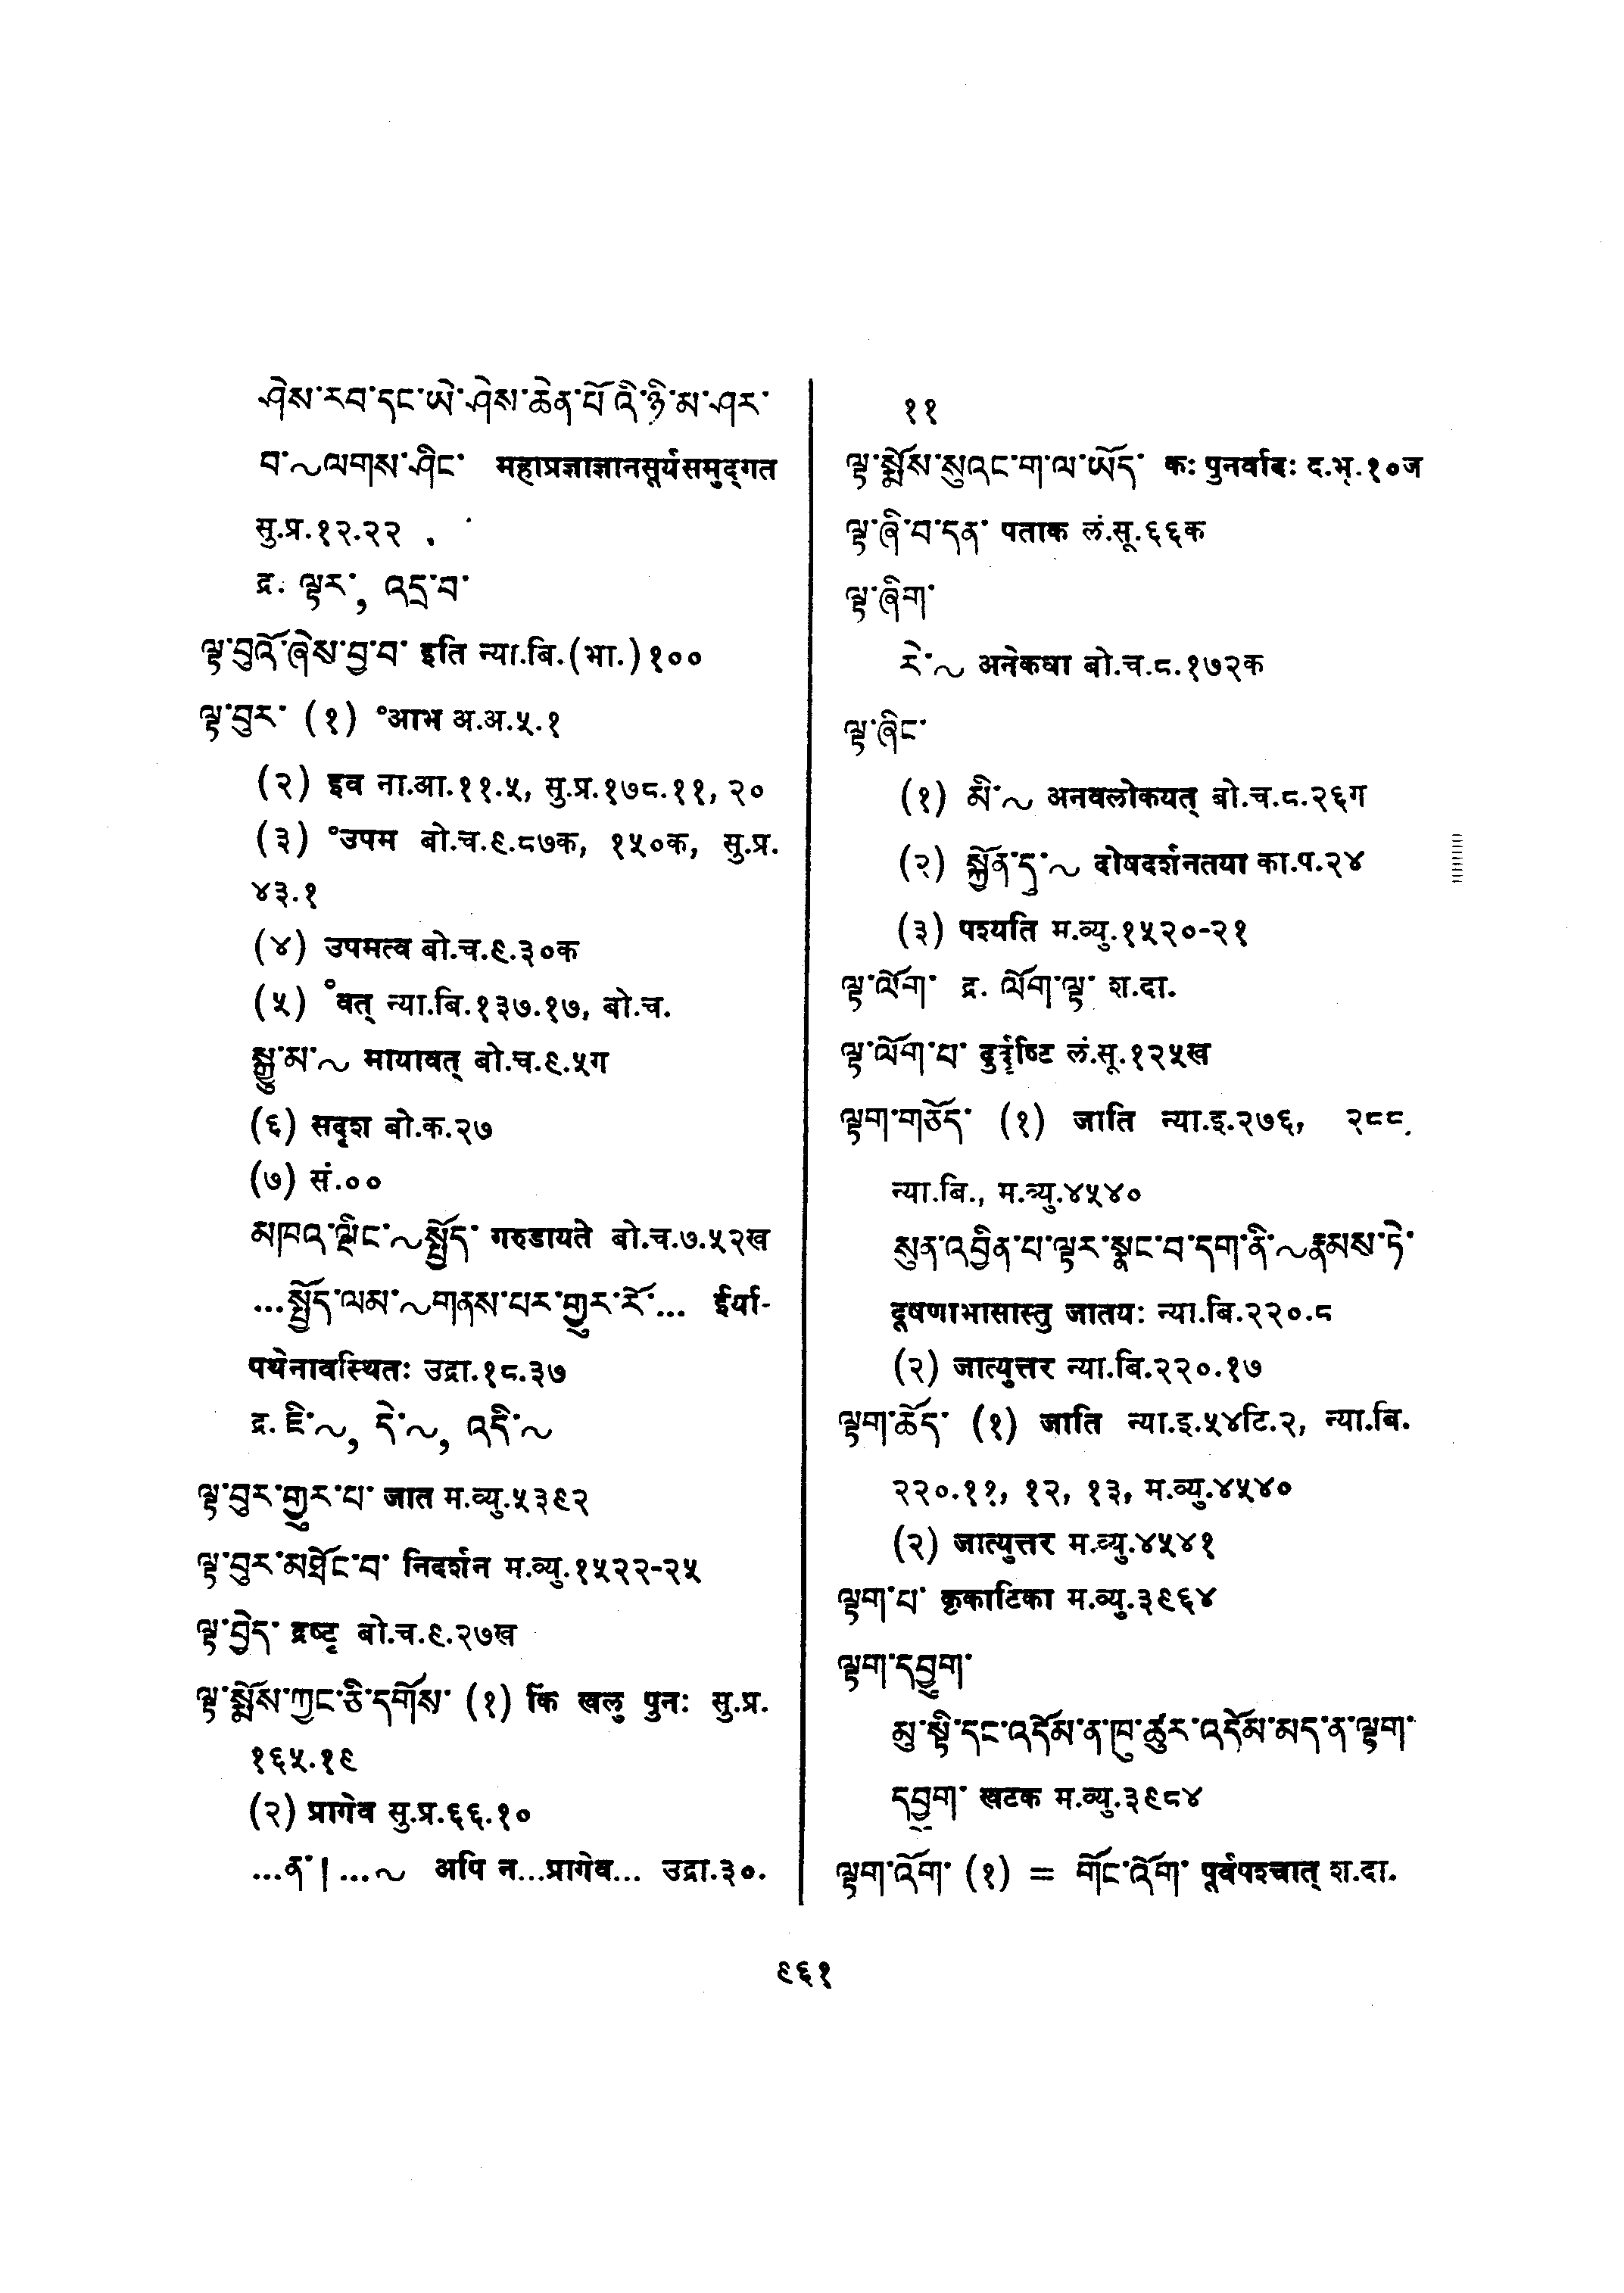 ཤེས་རབ་དང་ཡེ་ཤེས་ཆེན་པོ་འི་ཉི་མ་ཤར་
བ་～ལགས་ཤིང་ महाप्रज्ञाज्ञानसूर्यसमुद्गत
सु.प्र.१२.२२
द्र. ལྟར་, འདྲ་བ་
ལྟ་བུའོ་ཞེས་བྱ་བ་ इति न्या.बि.(भा.)१००
ལྟ་བུར་ (१) °आभ अ.अ.५.१
(२) इव ना.आ.११.५, सु.प्र.१७८.११, २०
(३) °उपम बो.च.९.८७क, १५०क, सु.प्र.
४३.१
(४) उपमत्व बो.च.९.३०क
(५) °वत् न्या.बि.१३७.१७, बो.च.
སྒྱུ་མ་～ मायावत् बो.च.९.५ग
(६) सदृश बो.क.२७
(७) सं.००
མཁའ་ལྡིང་～སྤྱོད་ गरुडायते बो.च.७.५२ख
...སྤྱོད་ལམ་～གནས་པར་གྱུར་རོ་... ईर्या-
पथेनावस्थितः उद्रा.१८.३७
द्र. ཇི་～, དེ་～, འདི་～
ལྟ་བུར་གྱུར་པ་ जात म.व्यु.५३९२
ལྟ་བུར་མཐོང་བ་ निदर्शन म.व्यु.१५२२-२५
ལྟ་བྱེད་ द्रष्टृ बो.च.९.२७ख
ལྟ་སྨོས་ཀྱང་ཅི་དགོས་ (१) किं खलु पुनः सु.प्र.
१६५.१९
(२) प्रागेव सु.प्र.६६.१०
...ན་། ...～ अपि न...प्रागेव... उद्रा.३०.
११
ལྟ་སྨོས་སུའང་ག་ལ་ཡོད་ कः पुनर्वादः द.भू.१०ज
ལྟ་ཞི་བ་དན་ पताक लं.सू.६६क
ལྟ་ཞིག་
རེ་～ अनेकधा बो.च.८.१७२क
ལྟ་ཞིང་
(१) མི་～ अनवलोकयत् बो.च.८.२६ग
(२) སྐྱོན་དུ་～ दोषदर्शनतया का.प.२४
(३) पश्यति म.व्यु.१५२०-२१
ལྟ་ལོག་ द्र. ལོག་ལྟ་ श.दा.
ལྟ་ལོག་པ་ दुर्दृष्टि लं.सू.१२५ख
ལྟག་གཅོད་ (१) जाति न्या.इ.२७६, २८८,
न्या.बि., म.व्यु.४५४०
སུན་འབྱིན་པ་ལྟར་སྣང་བ་དག་ནི་～རྣམས་ཏེ་
दूषणाभासास्तु जातयः न्या.बि.२२०.८
(२) जात्युत्तर न्या.बि.२२०.१७
ལྟག་ཆོད་ (१) जाति न्या.इ.५४टि.२, न्या.बि.
२२०.११, १२, १३, म.व्यु.४५४०
(२) जात्युत्तर म.व्यु.४५४१
ལྟག་པ་ कृकाटिका म.व्यु.३९६४
ལྟག་དབྱུག་
མུ་སྟི་དང་འདོམ་ན་ཁུ་ཚུར་འདོམ་མད་ན་ལྟག་
དབྱུག་ खटक म.व्यु.३९८४
ལྟག་འོག་ (१) = གོང་འོག་ पूर्वपश्चात् श.दा.
९६१